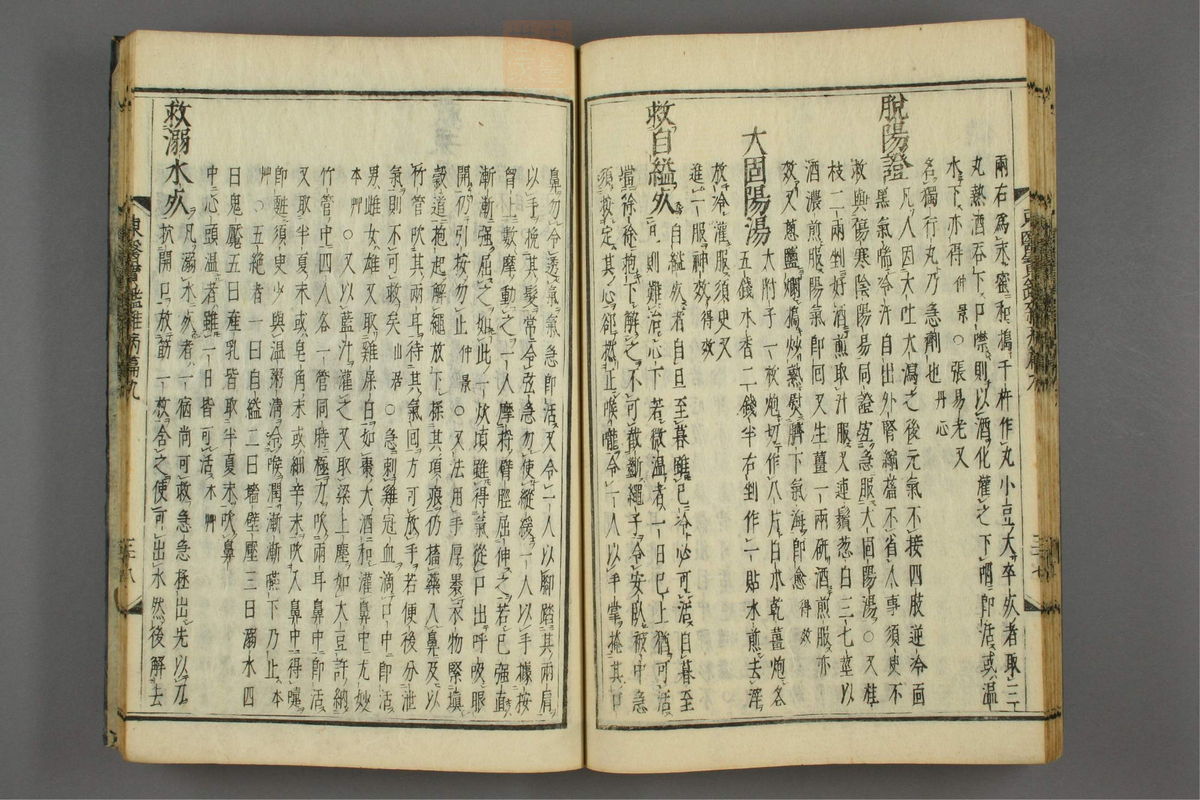 兩右爲末蜜和搗千杵作丸小豆大卒死者取三
丸熱酒吞下口噤則以酒化灌之下咽卽活或溫
水下亦得仲景○張易老又
名獨行丸乃急劑也丹心
脫陽證
凡人因大吐大瀉之後元氣不接四肢逆冷面
黑氣喘冷汗自出外腎縮搐不省人事須臾不
救與傷寒陰陽易同證宜急服大固陽湯○又桂
枝二兩剉好酒煎取汁服又連鬚葱白三七莖以
酒濃煎服陽氣卽回又生薑一兩硏酒煎服亦
效又葱鹽爛搗炒熱熨臍下氣海卽愈得效
大固陽湯
大附子一枚炮切作八片白朮乾薑炮各
五錢木香二錢半右剉作一貼水煎去滓
放冷灌服須臾又
進一服神效得效
救自縊死
自縊死者自旦至暮雖已冷必可活自暮至
旦則難治心下若微溫者一日已上猶可活
當徐徐抱下解之不可截斷繩子令安臥被中急
須按定其心却撚正喉嚨令一人以手掌掩其口
鼻勿令透氣氣急卽活又令一人以脚踏其兩肩
以手挽其髮常令弦急勿使縱緩一人以手據按
胷上數摩動之一人摩捋臂脛屈伸之若已强直
漸漸强屈之如此一炊頃雖得氣從口出呼吸眼
開仍引按勿止仲景○又法用手厚褁衣物緊塡
穀道抱起解繩放下揉其項痕仍搐藥入鼻及以
竹管吹其兩耳待其氣回方可放手若便後分泄
氣則不可救矣山居○急刺雞冠血滴口中卽活
男雌女雄又取雞屎白如棗大酒和灌鼻中尤妙
本艸○又以藍汁灌之又取梁上塵如大豆許納
竹管中四人各一管同時極力吹兩耳鼻中卽活
又取半夏末或皂角末或細辛末吹入鼻中得嚏
卽甦須臾少與溫粥淸冷喉潤漸漸嚥下乃止本
艸○五絶者一曰自縊二曰墻壁壓三曰溺水四
曰鬼魘五曰産乳皆取半夏末吹鼻
中心頭溫者雖一日皆可活本艸
救溺水死
凡溺水死者一宿尚可救急急極出先以刀
抉開口放筯一枚含之使可出水然後解去
東醫寶鑑雜病篇九
三十七
東醫寶鑑雜病篇九
三十八